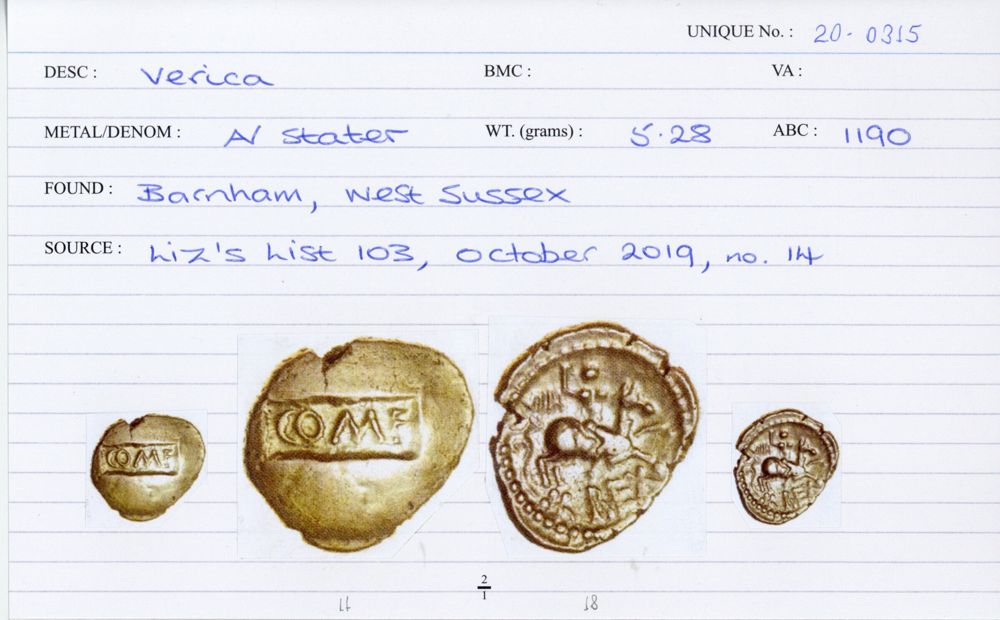 UNIQUE No. : 20-0315
DESC : Verica BMC : VA :
METAL/DENOM : A/ Stater WT. (grams) : 5.28 ABC : 1190
FOUND : Barnham, West Sussex
SOURCE : Liz's List 103, October 2019, no. 14
COMF
COMF
2
1
18